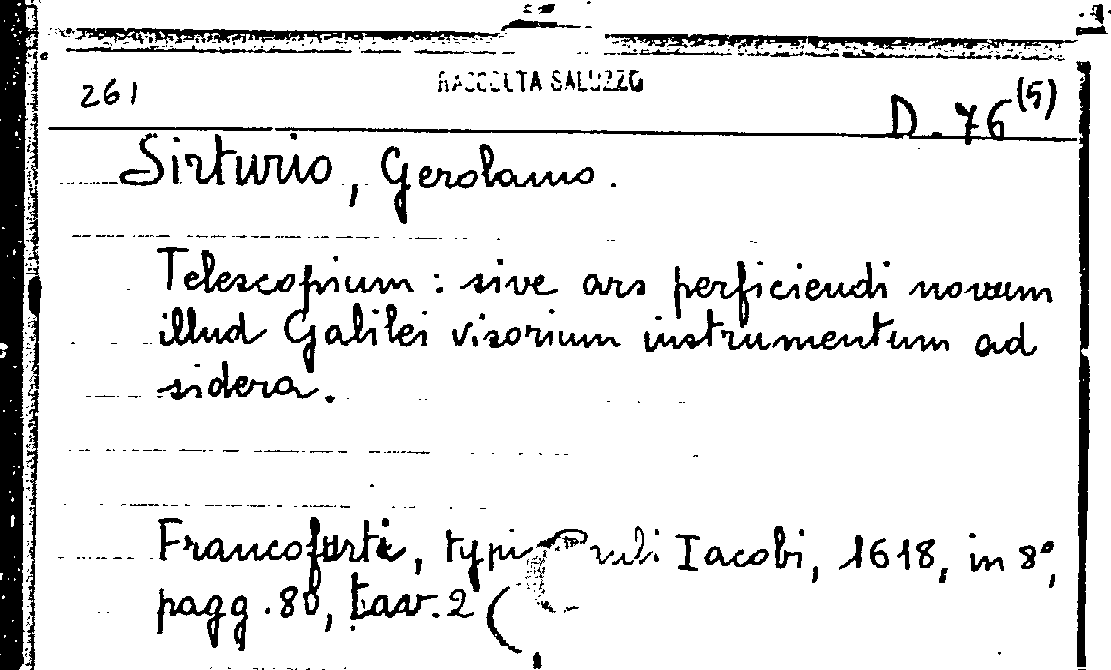 261 RACCOLTA SALUZZO D. 76 (5)
Sirturio, Gerolamo.
Telescopium : sive ars perficiendi novum
illud Galilei visorium instrumentum ad
sidera.
Francofurti, typis Pauli Iacobi, 1618, in 8°,
pagg. 80, tav. 2